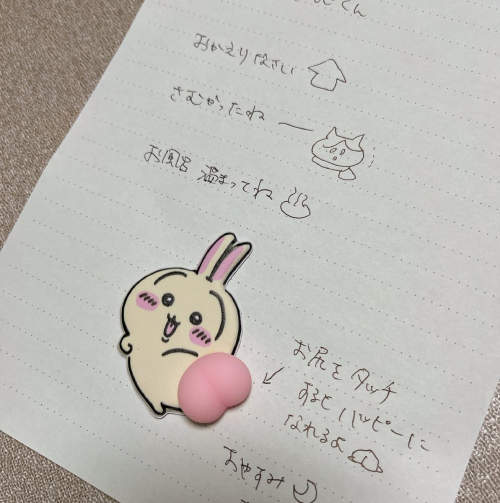 くん
おかえりなさい
さむかったね
お風呂 温まってね
お尻を タッチ
すると ハッピーに
なれるよ
おやすみ